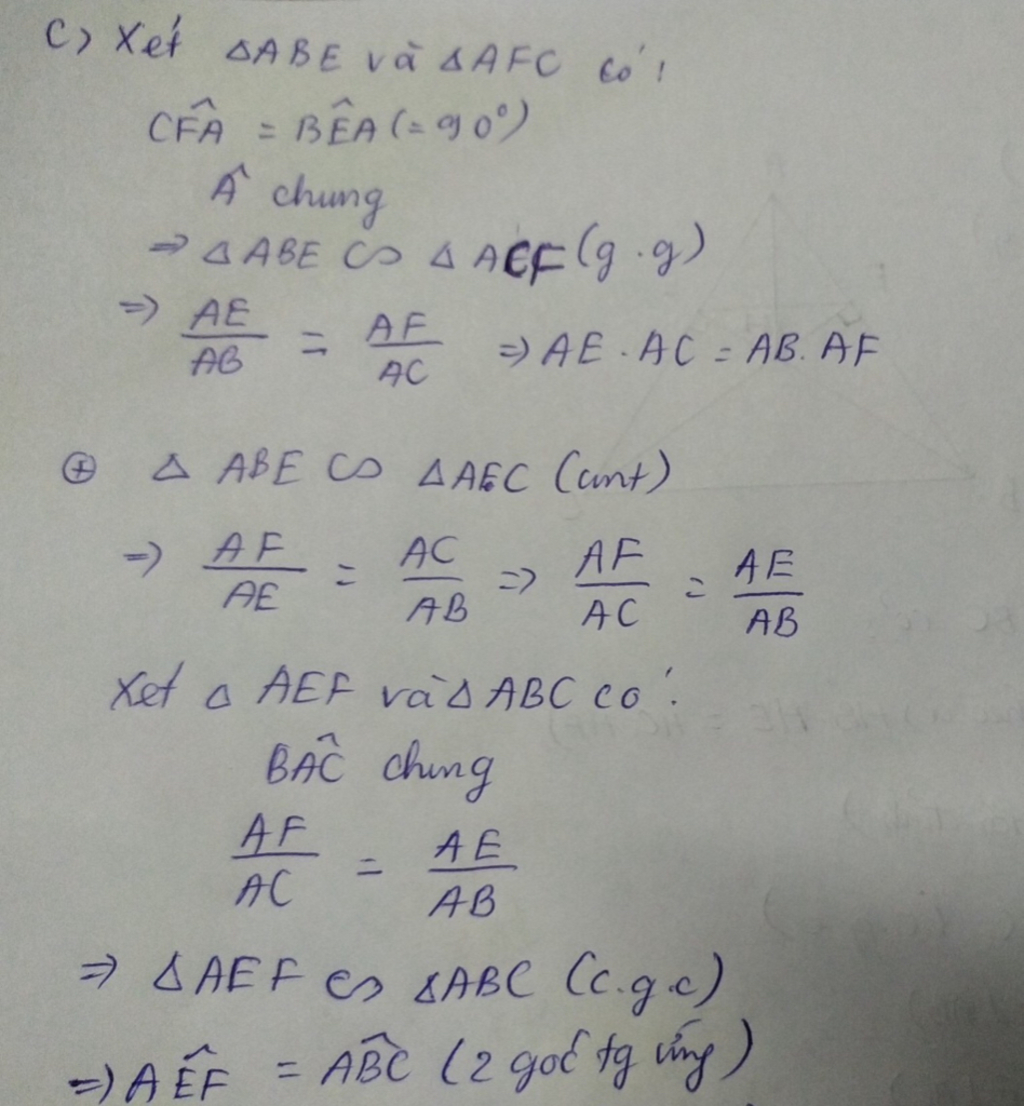 C) Xét ΔABE và ΔAFC có:
CF̂A = BÊA (= 90°)
Â chung
⇒ ΔABE ∽ ΔACF (g.g)
⇒ AE/AB = AF/AC ⇒ AE . AC = AB. AF
⊕ Δ ABE ∽ ΔAEC (cmt)
⇒ AF/AE = AC/AB ⇒ AF/AC = AE/AB
Xét Δ AEF và Δ ABC có:
BÂC chung
AF/AC = AE/AB
⇒ ΔAEF ∽ ΔABC (c.g.c)
⇒ AÊF = AB̂C (2 góc tg ứng)